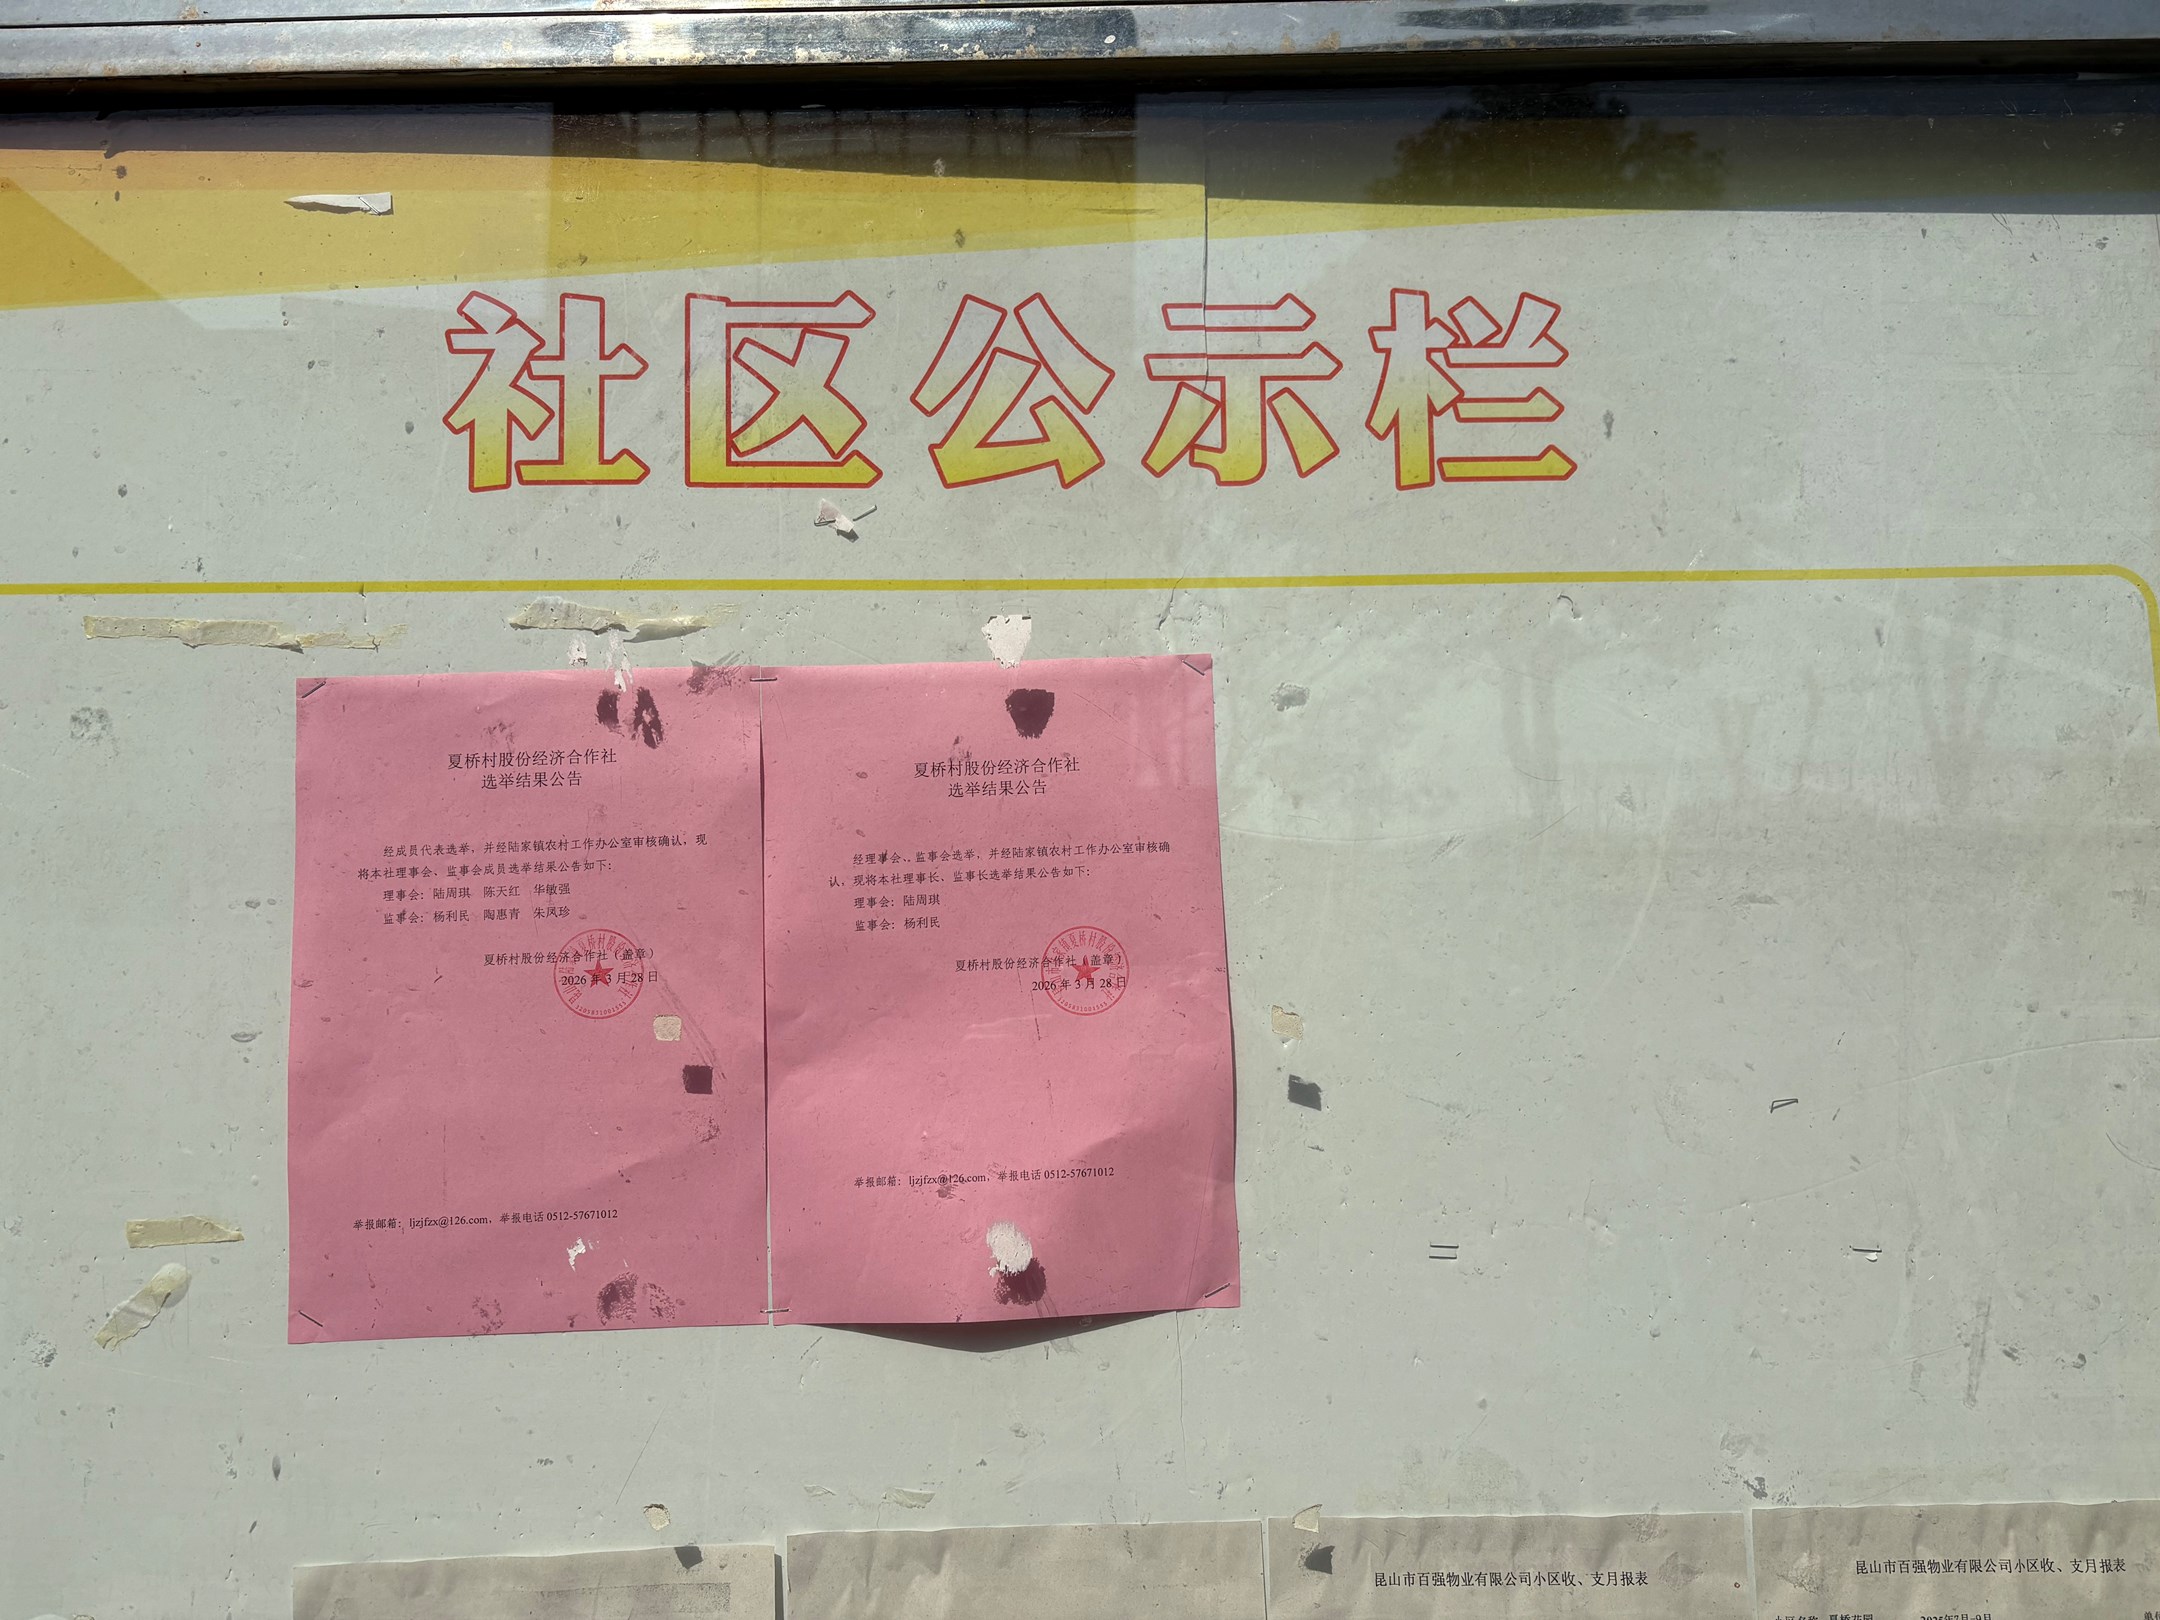 社区公示栏
夏桥村股份经济合作社
选举结果公告
经成员代表选举，并经陆家镇农村工作办公室审核确认，现
将本社理事会、监事会成员选举结果公告如下：
理事会：陆周琪 陈天红 华敏强
监事会：杨利民 陶惠青 朱凤珍
夏桥村股份经济合作社（盖章）
2026 年 3 月 28 日
举报邮箱：ljzjfzx@126.com，举报电话 0512-57671012
夏桥村股份经济合作社
选举结果公告
经理事会、监事会选举，并经陆家镇农村工作办公室审核确
认，现将本社理事长、监事长选举结果公告如下：
理事会：陆周琪
监事会：杨利民
夏桥村股份经济合作社（盖章）
2026 年 3 月 28 日
举报邮箱：ljzjfzx@126.com，举报电话 0512-57671012
昆山市百强物业有限公司小区收、支月报表
昆山市百强物业有限公司小区收、支月报表